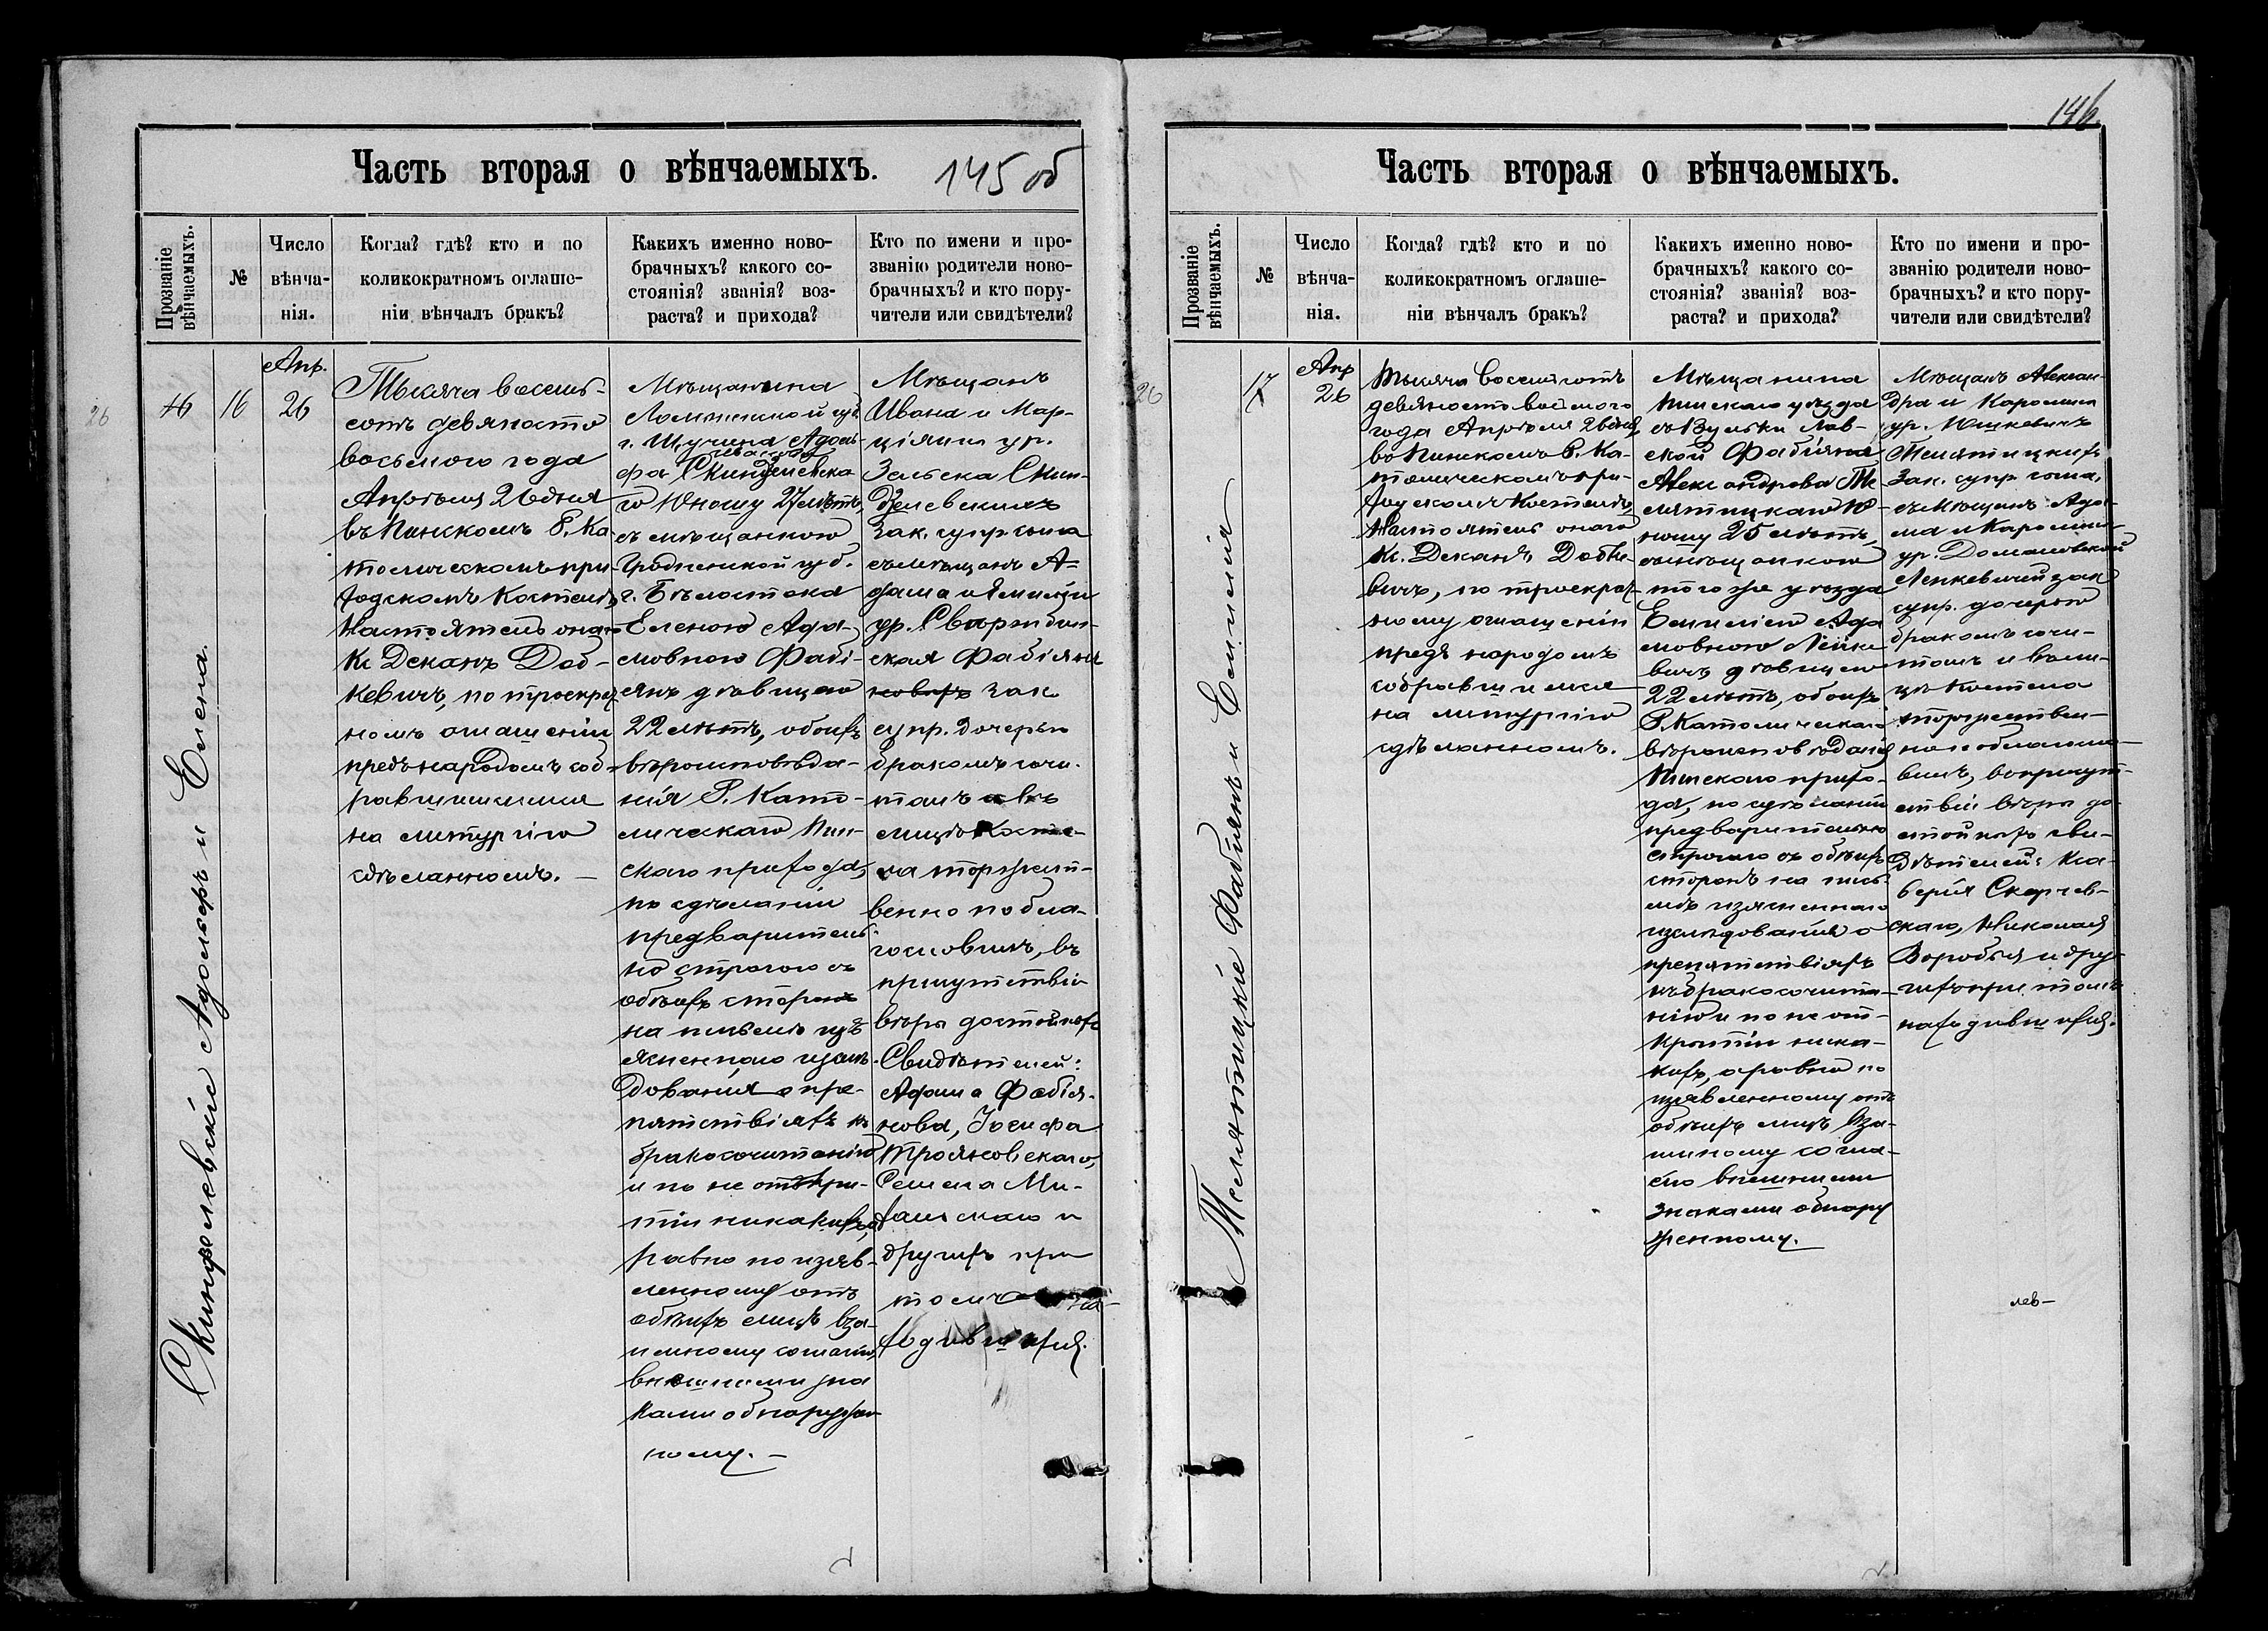 Часть вторая о вѣнчаемыхъ.
145 об
Прозваніе вѣнчаемыхъ.
№
Число вѣнча-
нія.
Когда? гдѣ? кто и по
коликократномъ оглаше-
ніи вѣнчалъ бракъ?
Какихъ именно ново-
брачныхъ? какого со-
стоянія? званія? воз-
раста? и прихода?
Кто по имени и про-
званію родители ново-
брачныхъ? и кто пору-
чители или свидѣтели?
26
16
16
Апр.
26
Скинделевскіе Адольфъ и Елена.
Тысяча восемь-
сотъ девяносто
восьмого года
Апрѣля 26 дня
въ Пинскомъ Р. Ка-
толическомъ при-
ходскомъ Костелѣ
Настоятель онаго
Кс Деканъ Доб-
кевичъ, по троекрат-
номъ оглашеніи
предъ народомъ соб-
равшимися
на литургію
сдѣланномъ. —
Мѣщанина
Ломжинской губ.
г. Щучина Адоль-
фа
Скинделевска
го Юношу 27 лѣтъ,
съ мѣщанкою
Гродненской губ.
г. Бѣлостока
Еленою Ада-
мовною Фабі-
янъ дѣвицею
22 лѣтъ, обоихъ
вѣроисповѣда-
нія Р. Като-
лическаго Пин-
скаго прихода,
по сдѣланіи
предваритель-
но строгого съ
обѣихъ сторонъ
на письмѣ изъ
ясненнаго изслѣ-
дованія о пре-
пятствіяхъ къ
бракосочетанію
и по не откры-
тіи никакихъ, а
равно по изъяв-
ленному отъ
обѣихъ лицъ вза-
имному согласію,
внѣшними зна
ками обнаружен
ному. —
Мѣщанъ
Ивана и Мар-
ціяны ур.
Зельска Скин-
делевскихъ
Зак. супр сына
съ мѣщанъ А-
дама и Эмиліи
ур. Свържбин-
ская Фабіянъ
зак.
супр. дочерью
бракомъ соче-
талъ въ
лицѣ Косте-
ла торжест-
венно побла-
гословилъ, въ
присутствіи
вѣры достойныхъ
Свидѣтелей:
Адама Фабія-
нова, Іосифа
Трояновскаго,
Семена Ми-
хальскаго и
другихъ при
томъ на-
ходившихся.
146.
Часть вторая о вѣнчаемыхъ.
Прозваніе вѣнчаемыхъ.
№
Число вѣнча-
нія.
Когда? гдѣ? кто и по
коликократномъ оглаше-
ніи вѣнчалъ бракъ?
Какихъ именно ново-
брачныхъ? какого со-
стоянія? званія? воз-
раста? и прихода?
Кто по имени и про-
званію родители ново-
брачныхъ? и кто пору-
чители или свидѣтели?
26
17
Апр
26
Телятицкіе Фабіянъ и Емилія
Тысяча восемьсотъ
девяносто восьмого
года Апрѣля 26 дня,
въ Пинскомъ Р. Ка-
толическомъ при-
ходскомъ Костелѣ
Настоятель онаго
Кс. Деканъ Добке-
вичъ, по троекрат-
ному оглашеніи
предъ народомъ
собравшимися
на литургію
сдѣланномъ.
Мѣщанина
Пинскаго уѣзда
съ Вульки Лав-
ской Фабіяна
Александрова Те
лятицкаго Ю-
ношу 25 лѣтъ,
съ мѣщанкою
того же уѣзда
Емиліею Ада
мовною Ленке
вичъ дѣвицею
22 лѣтъ, обоихъ
Р. Католическаго
вѣроисповѣданія
Пинскаго прихо-
да, по сдѣланіи
предварительно
строгаго съ обѣихъ
сторонъ на пись-
мѣ изясненнаго
изслѣдованія о
препятствіяхъ
къ бракосочета-
нію и по не от-
крытіи ника-
кихъ, а равно по
изявленному отъ
обѣихъ лицъ вза-
имному согла-
сію внѣшними
знаками обнару
женному.
Мѣщанъ Алексан-
дра и Каролины
ур. Юшкевичъ
Телятицкихъ
Зак. супр сына,
съ мѣщанъ Ада-
ма и Каролины
ур. Домановской
Ленкевичей зак
супр. дочерью
бракомъ соче-
талъ и въ ли-
цѣ Костела
торжествен-
но побла­госло-
вилъ, въ присут-
ствіи вѣры до-
стойныхъ сви-
дѣтелей: Кса-
верія Скорчев-
скаго, Николая
Воробья и дру-
гихъ при томъ
находившихся.
лев—